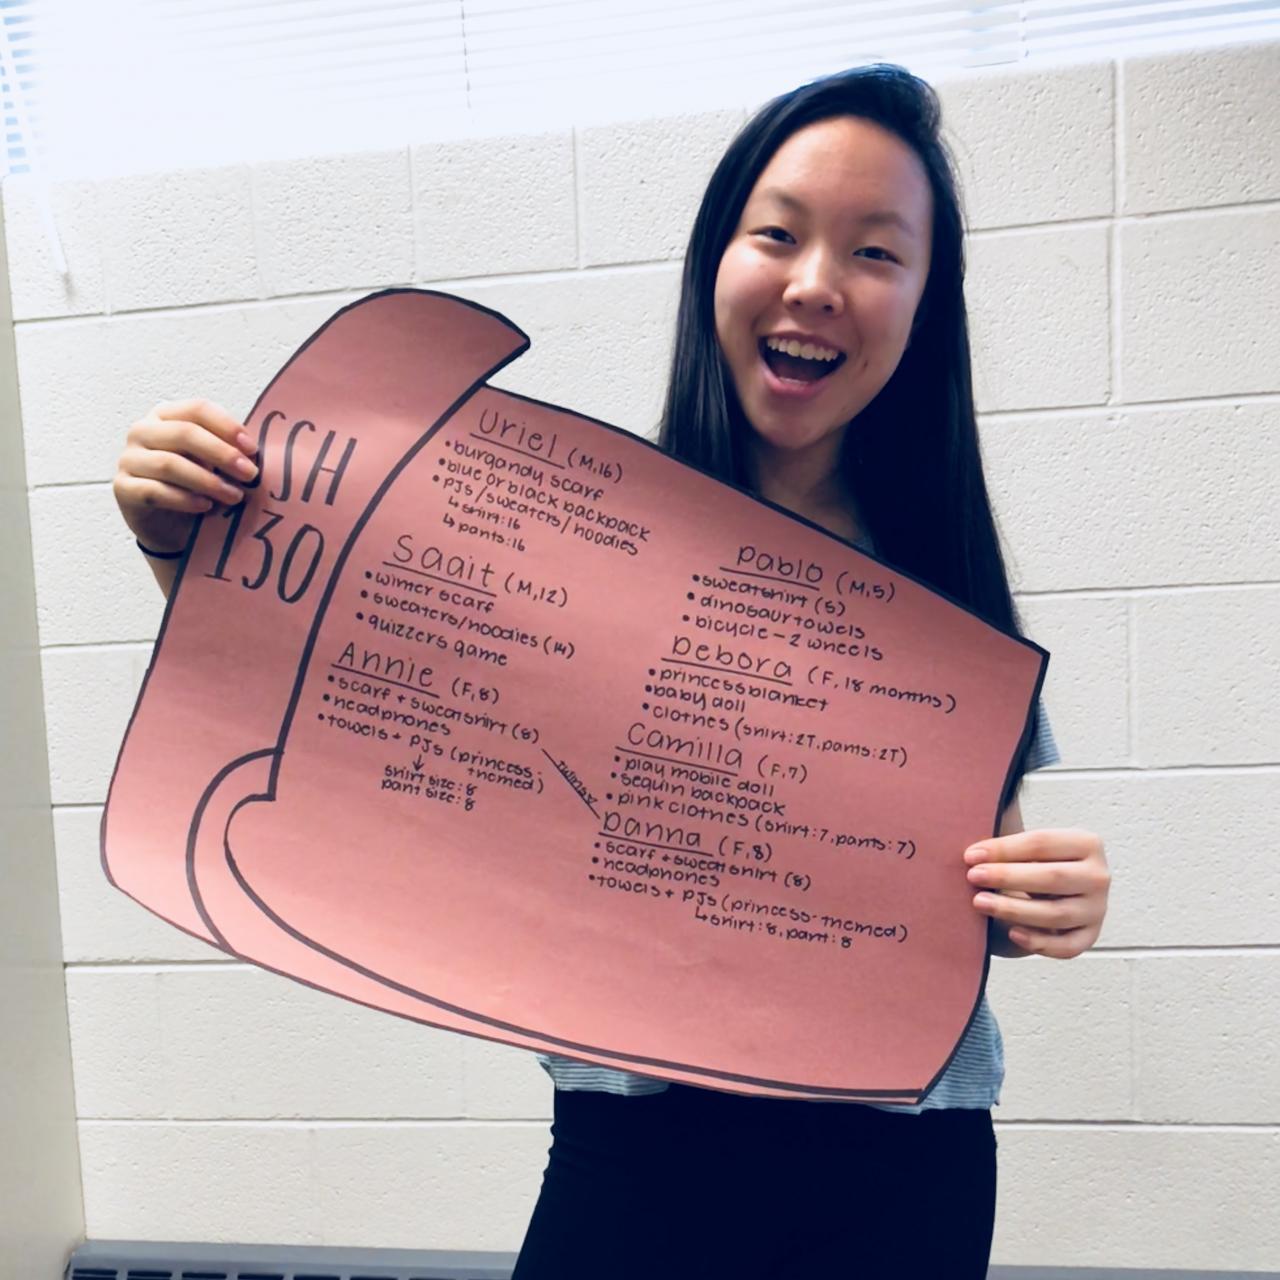 SSH
130
Uriel (M,16)
•burgandy scarf
•blue or black backpack
•PJs/sweaters/hoodies
↳shirt:16
↳pants:16
Saait (M,12)
•winter scarf
•sweaters/hoodies (14)
•quizzers game
Annie (F,8)
•scarf + sweatshirt (8)
•headphones
•towels + PJs (princess-
themed)
↓
shirt size:8
pant size:8
twins!
Pablo (M,5)
•sweatshirt (5)
•dinosaur towels
•bicycle - 2 wheels
Debora (F, 18 months)
•princess blanket
•baby doll
•clothes (shirt:2T, pants:2T)
Camilla (F,7)
•play mobile doll
•sequin backpack
•pink clothes (shirt:7, pants:7)
Danna (F,8)
•scarf + sweatshirt (8)
•headphones
•towels + PJs (princess-themed)
↳shirt:8, pant:8